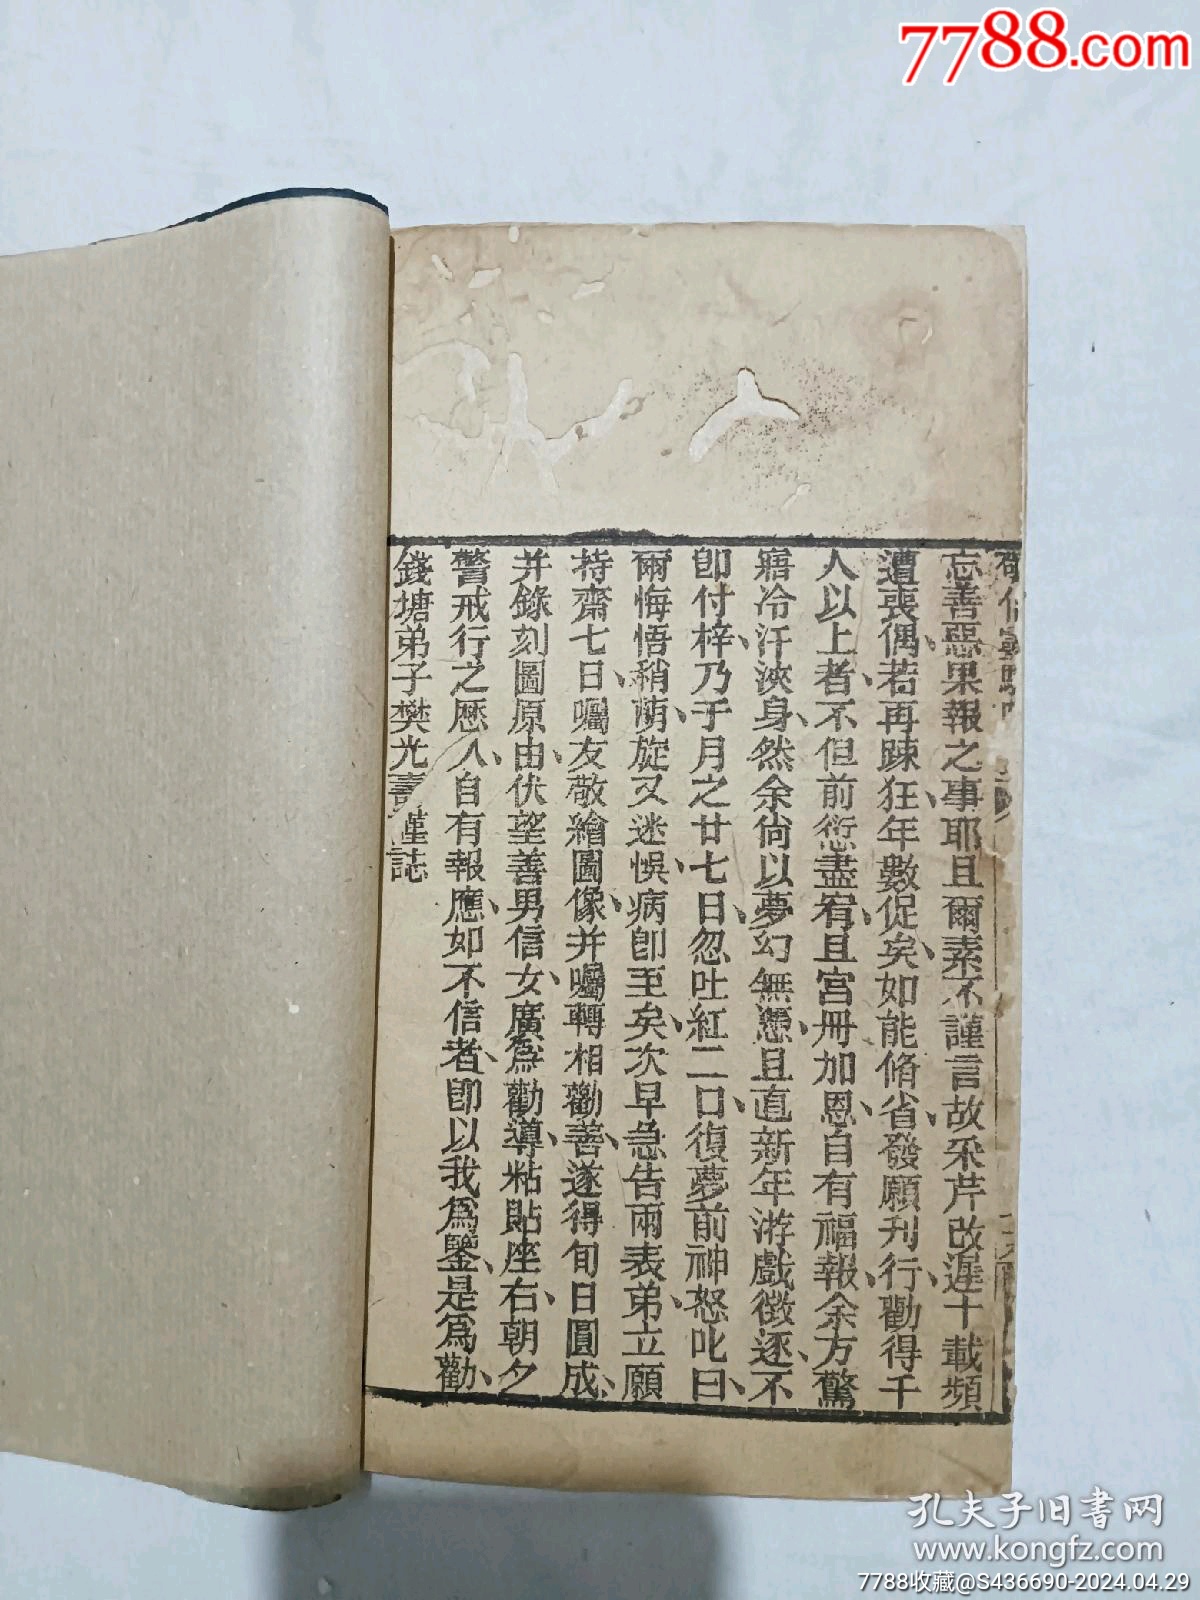 7788.com
忘善惡果報之事耶且爾素不謹言故采芹改遲十載頻
遭喪偶若再踈狂年數促矣如能脩省發願刊行勸得千
人以上者不但前愆盡宥且宮冊加恩自有福報余方驚
寤冷汗浹身然余尙以夢幻無憑且直新年游戲徵逐不
卽付梓乃于月之廿七日忽吐紅二口復夢前神怒叱曰
爾悔悟稍萌旋又迷悞病卽至矣次早急告兩表弟立願
持齋七日囑友敬繪圖像并囑轉相勸善遂得旬日圓成
并錄刻圖原由伏望善男信女廣爲勸導粘貼座右朝夕
警戒行之厯久自有報應如不信者卽以我爲鑒是爲勸
錢塘弟子樊光壽謹誌
孔夫子旧书网
www.kongfz.com
7788收藏@S436690-2024.04.29